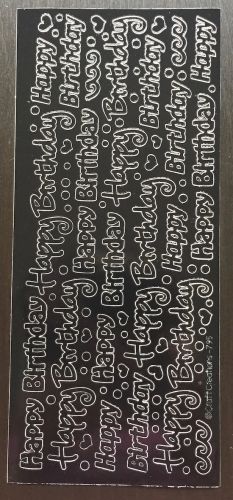 Happy Birthday
Happy Birthday
Happy
Birthday
Happy Birthday
Happy Birthday
Happy Birthday
Happy Birthday
Happy
Birthday
Happy Birthday
Happy
Birthday
Happy Birthday
Happy
Birthday
Happy
©Craft Creations - 795